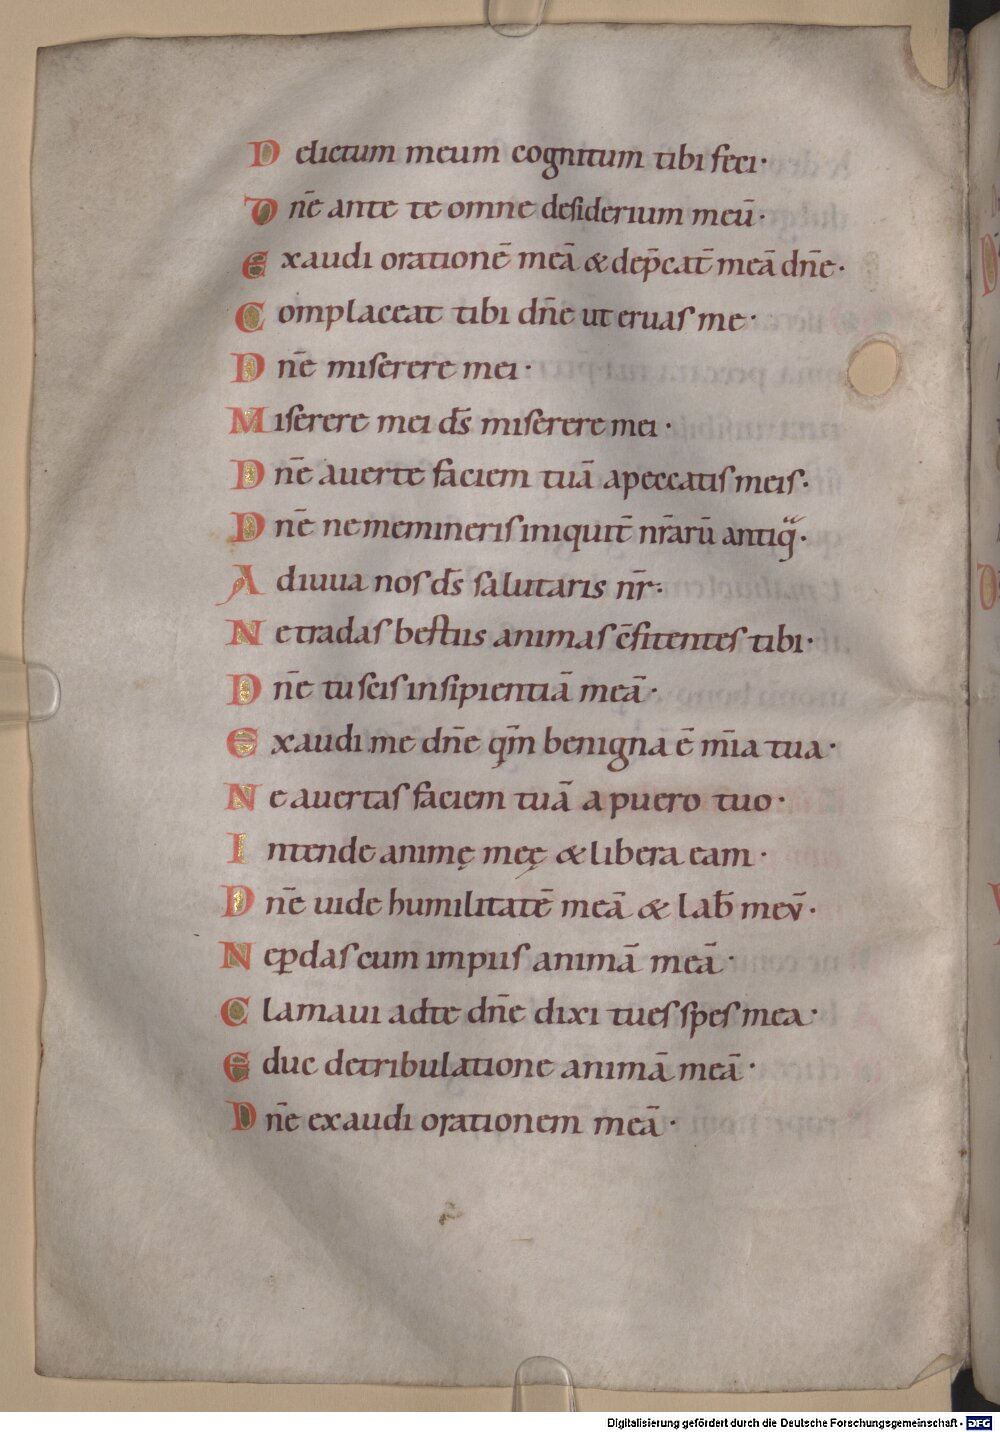 Delictum meum cognitum tibi feci·
Dn̄e ante te omne desiderium meū·
Exaudi orationē meā & dep̄cat̄ meā dn̄e·
Complaceat tibi dn̄e ut eruas me·
Dn̄e miserere mei·
Miserere mei d̄s miserere mei·
Dn̄e auerte faciem tuā a peccatis meis·
Dn̄e ne memineris iniquit̄ nr̄arū antiq̄·
Adiuua nos d̄s salutaris nr̄·
Ne tradas bestiis animas c̄fitentes tibi·
Dn̄e tu scis insipientiā meā·
Exaudi me dn̄e qm̄ benigna ē m̄ia tua·
Ne auertas faciem tuā a puero tuo·
Intende animę meę & libera eam·
Dn̄e uide humilitatē meā & lab̄ mev̄·
Ne ꝑdas cum impiis animā meā·
Clamaui ad te dn̄e dixi tu es spes mea·
Educ de tribulatione animā meā·
Dn̄e exaudi orationem meā·
Digitalisierung gefördert durch die Deutsche Forschungsgemeinschaft - DFG